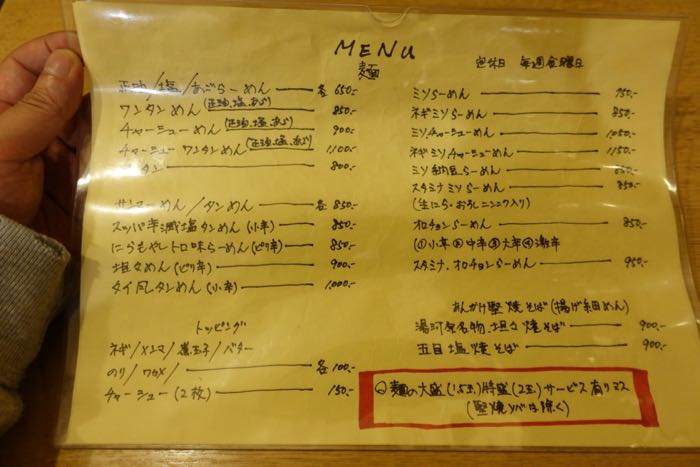 MENU
麺
定休日 毎週金曜日
正油/塩/あごらーめん 各650.-
ワンタンめん(正油、塩、あご) 850.-
チャーシューめん(正油、塩、あご) 900.-
チャーシューワンタンめん(正油、塩、あご) 1100.-
タン 800.-
サンマーめん/タンめん 各850.-
スッパ辛減塩タンめん(小辛) 850.-
にらもやしトロ味らーめん(ピリ辛) 850.-
坦々めん(ピリ辛) 900.-
タイ風タンめん(小辛) 1,000.-
トッピング
ネギ/メンマ/煮玉子/バター
のり/ワカメ/ 各100.-
チャーシュー(2枚) 150.-
ミソらーめん 750.-
ネギミソらーめん 850.-
ミソ、チャーシューめん 1050.-
ネギミソ、チャーシューめん 1150.-
ミソ納豆らーめん 850.-
スタミナミソらーめん 850.-
(生にら・おろしニンニク入り)
オロチョンらーめん 850.-
(①小辛②中辛③大辛④激辛
スタミナ、オロチョンらーめん 950.-
あんかけ堅焼そば(揚げ細めん)
湯河原名物坦々焼そば 900.-
五目塩焼そば 900.-
麺の大盛(1.5玉)特盛(2玉)サービス有リマス
(堅焼ソバは除く)